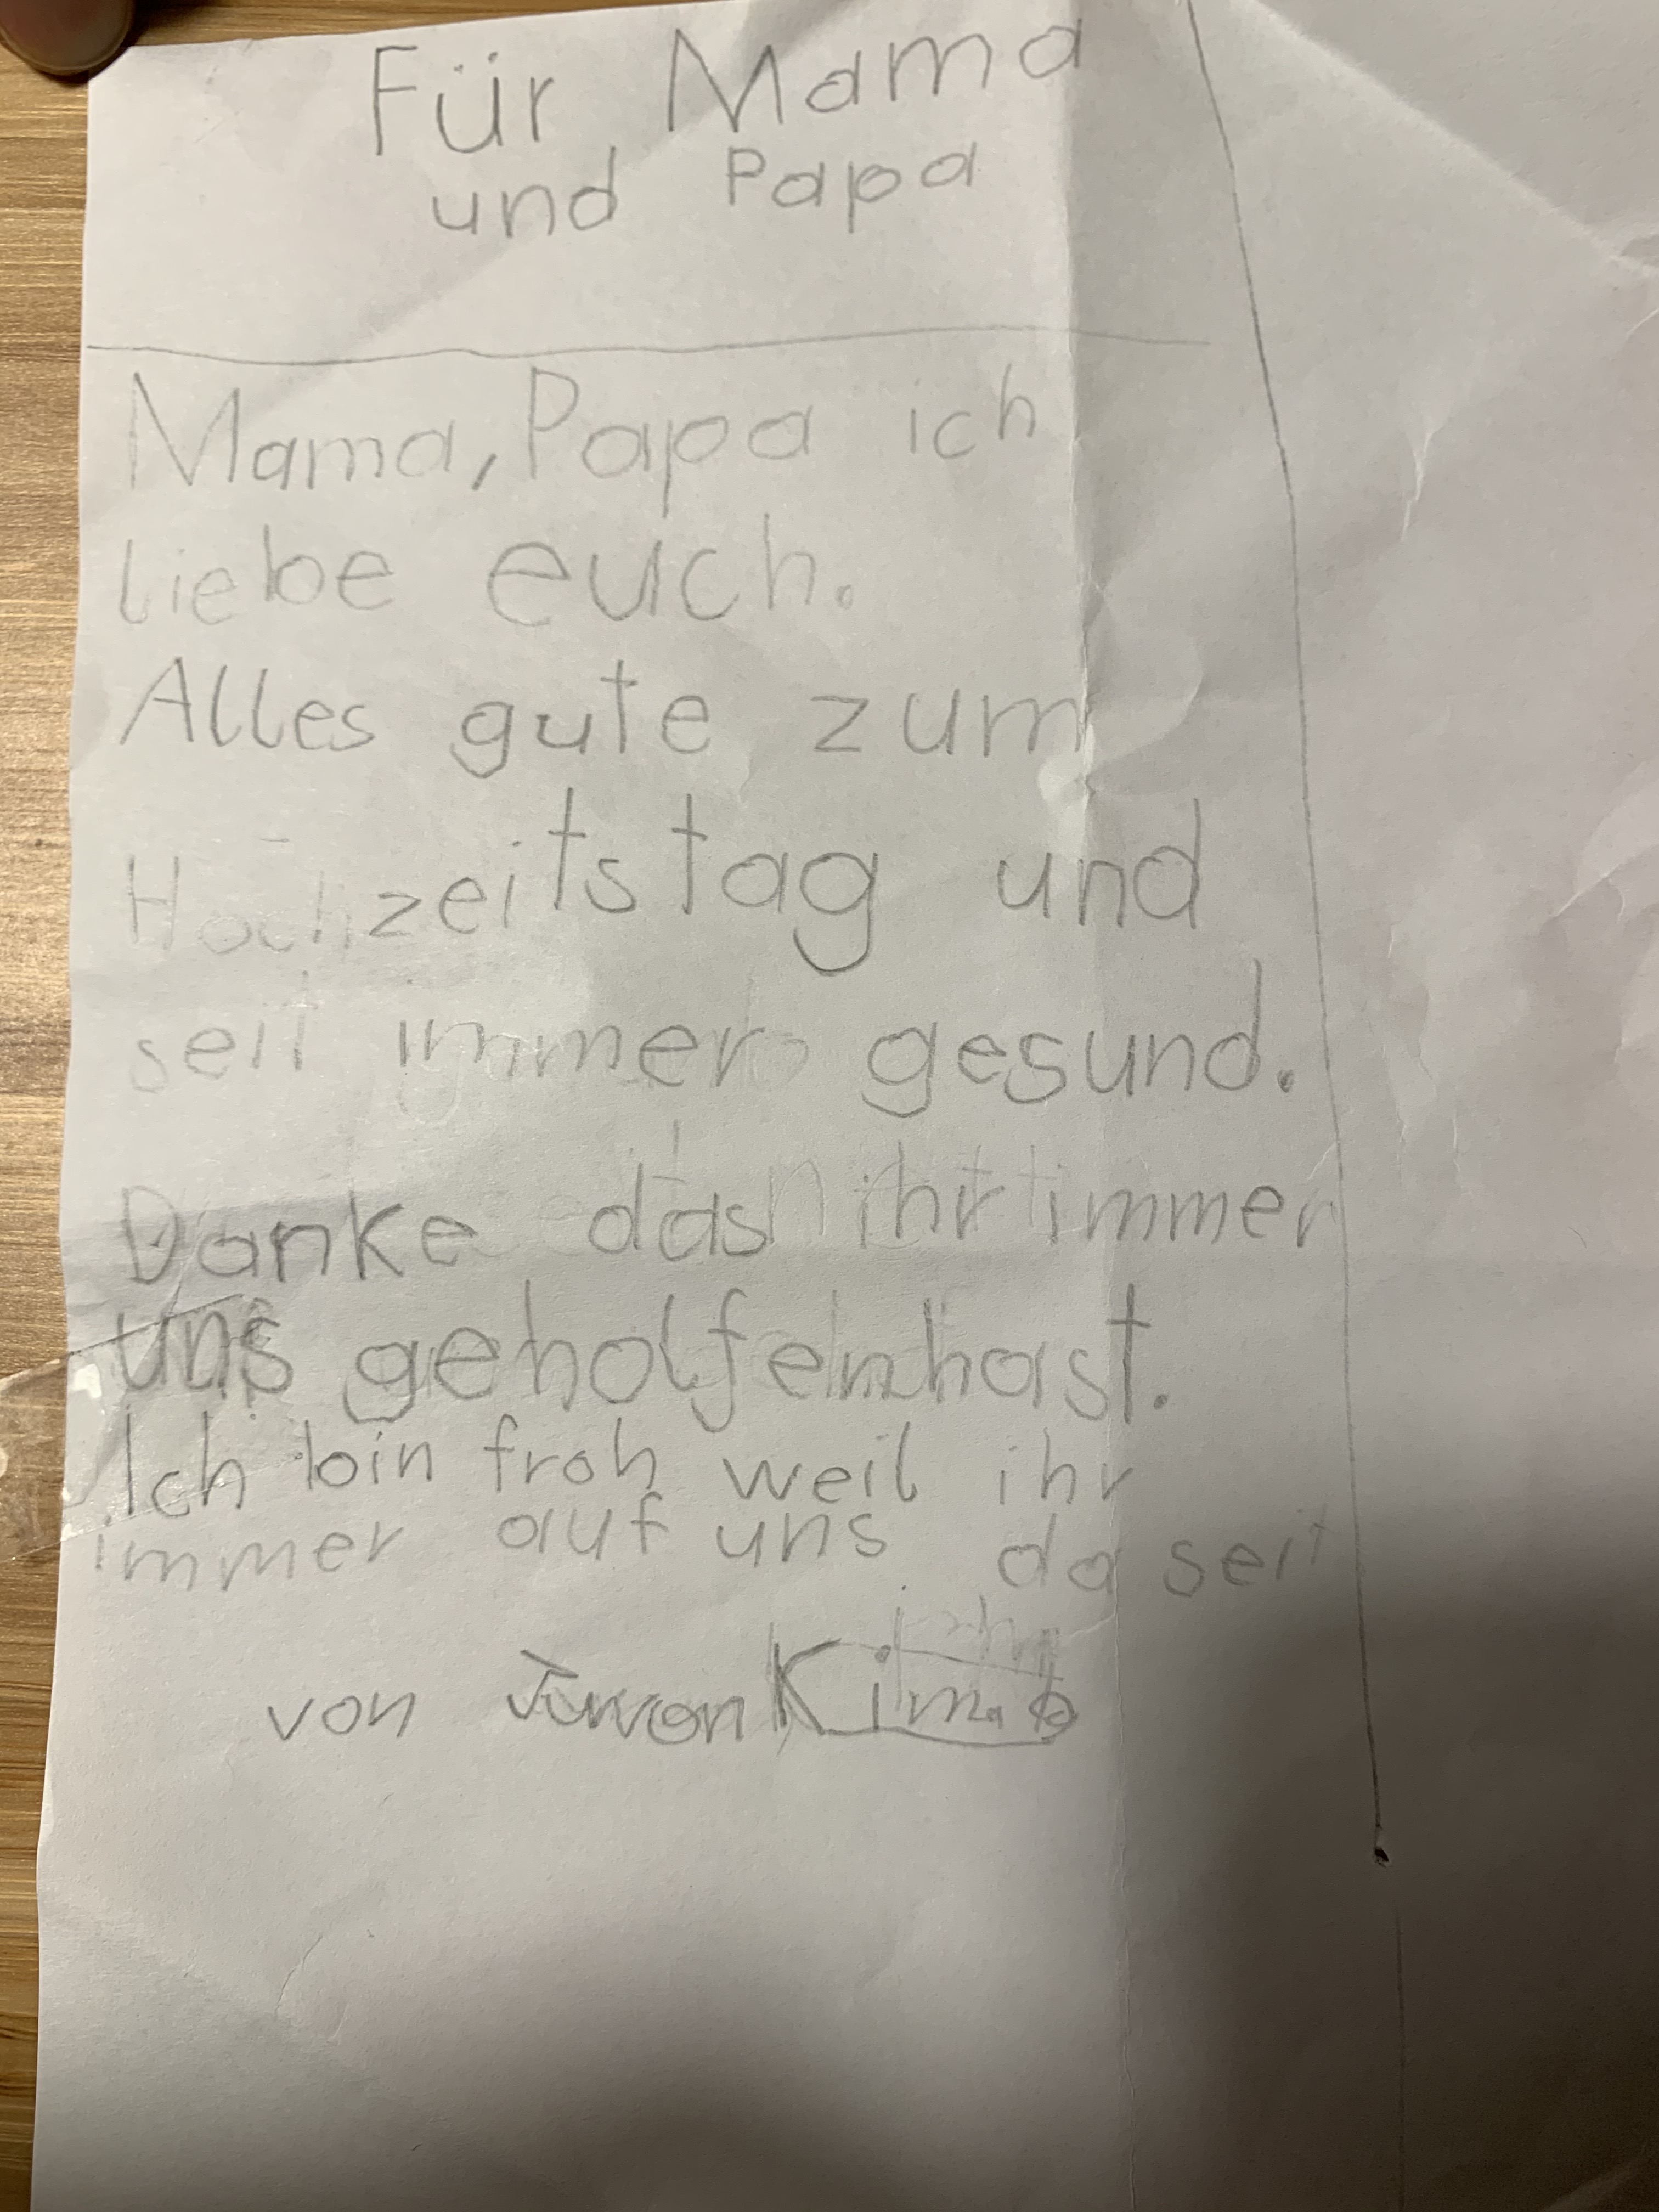 Für Mama
und Papa
Mama, Papa ich
liebe euch.
Alles gute zum
Hochzeitstag und
seit immer gesund.
Danke das ihr immer
uns geholfen hast.
Ich bin froh weil ihr
immer auf uns da seit
von Juwon Kim